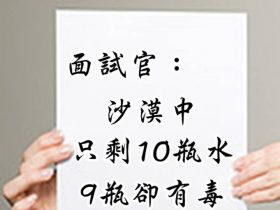 面試官：
沙漠中
只剩10瓶水
9瓶卻有毒